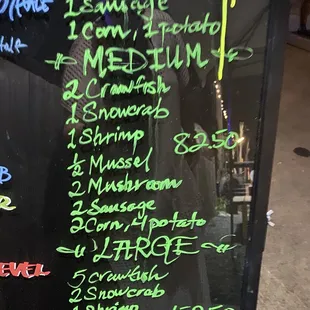 1 Sausage
1 Corn, 1 potato
MEDIUM
2 Crawfish
1 Snowcrab
1 Shrimp 82.50
½ Mussel
2 Mushroom
2 Sausage
2 Corn, 4 potato
LARGE
5 crawfish
2 Snowcrab
1 Shrimp